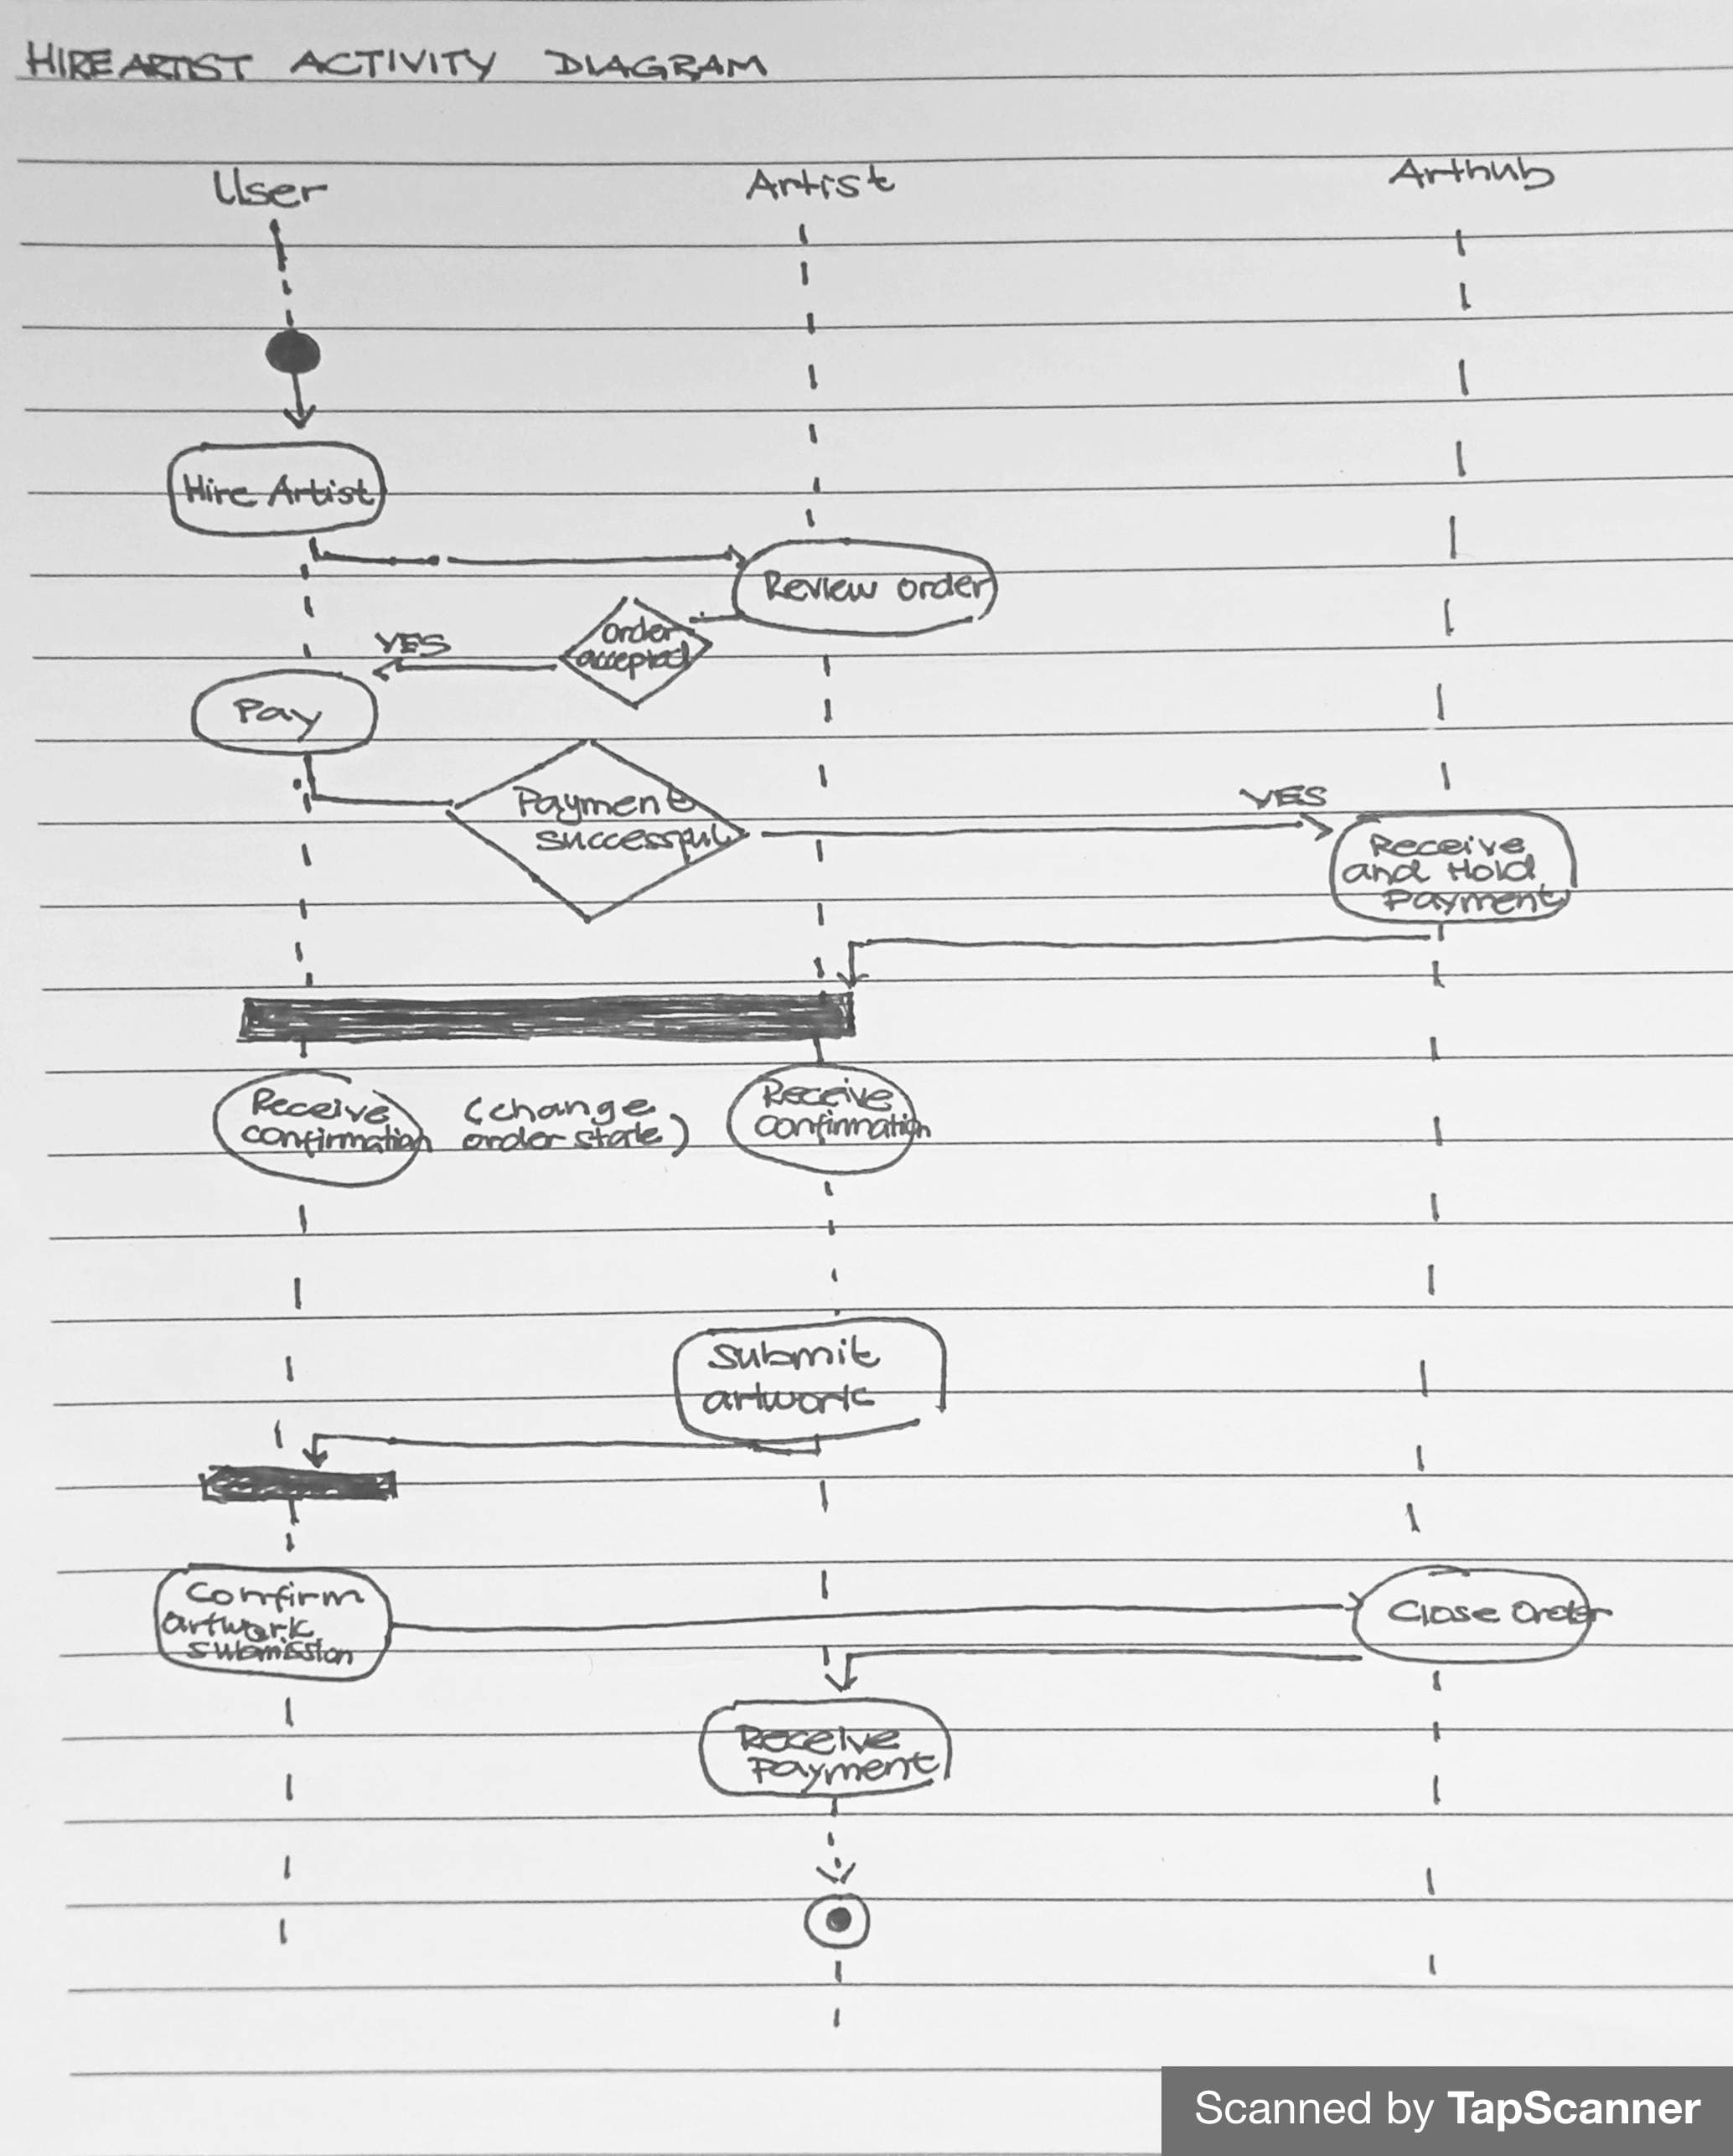 HIRE ARTIST ACTIVITY DIAGRAM
User
Artist
Arthub
Hire Artist
Review order
order
accepted
YES
Pay
Payment
successful
YES
Receive
and Hold
Payment
Receive
confirmation
(change
order state)
Receive
confirmation
Submit
artwork
Confirm
artwork
submission
Close Order
Receive
Payment
Scanned by TapScanner